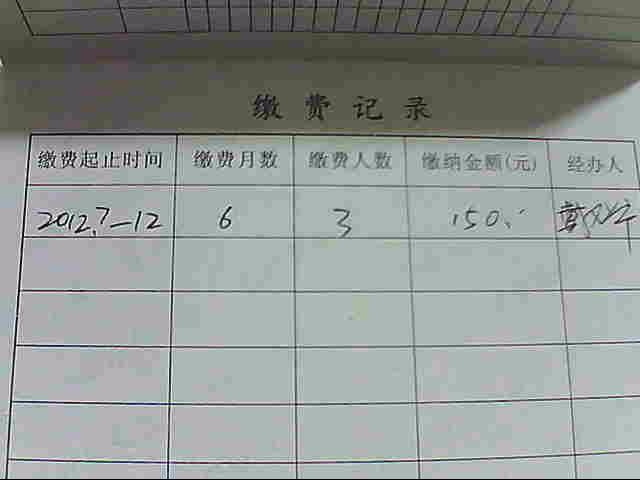 缴费记录
缴费起止时间 缴费月数 缴费人数 缴纳金额(元) 经办人
2012.7—12 6 3 150.